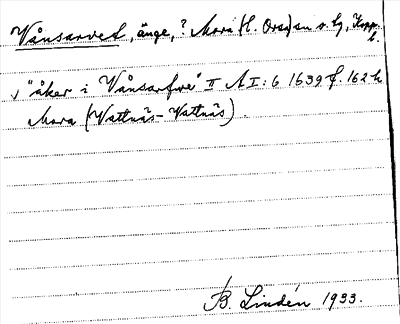 Vånsarvet, änge, ? Mora (l. Orsa) sn o. tg, Kopp. l.
"åker i Vånsarfwe" II A I: 6 1639 f. 162 h
Mora (Vattnäs-Vattnäs).
B. Lindén 1933.